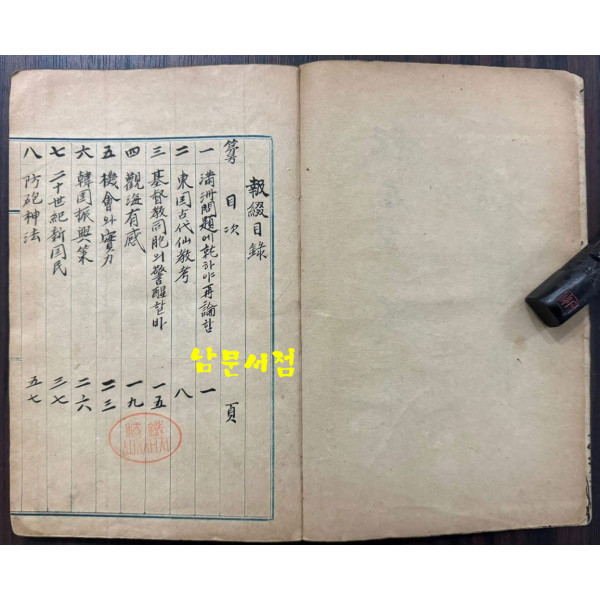 報綴目錄
第 目次 頁
一 滿洲問題에就하야再論함 一
二 東国古代仙教考 八
三 基督教同胞의警醒할바 一五
四 觀海有感 一九
五 機會와實力 二三
六 韓国振興策 二六
七 二十世紀新国民 三七
八 防砲神法 五七
남문서점